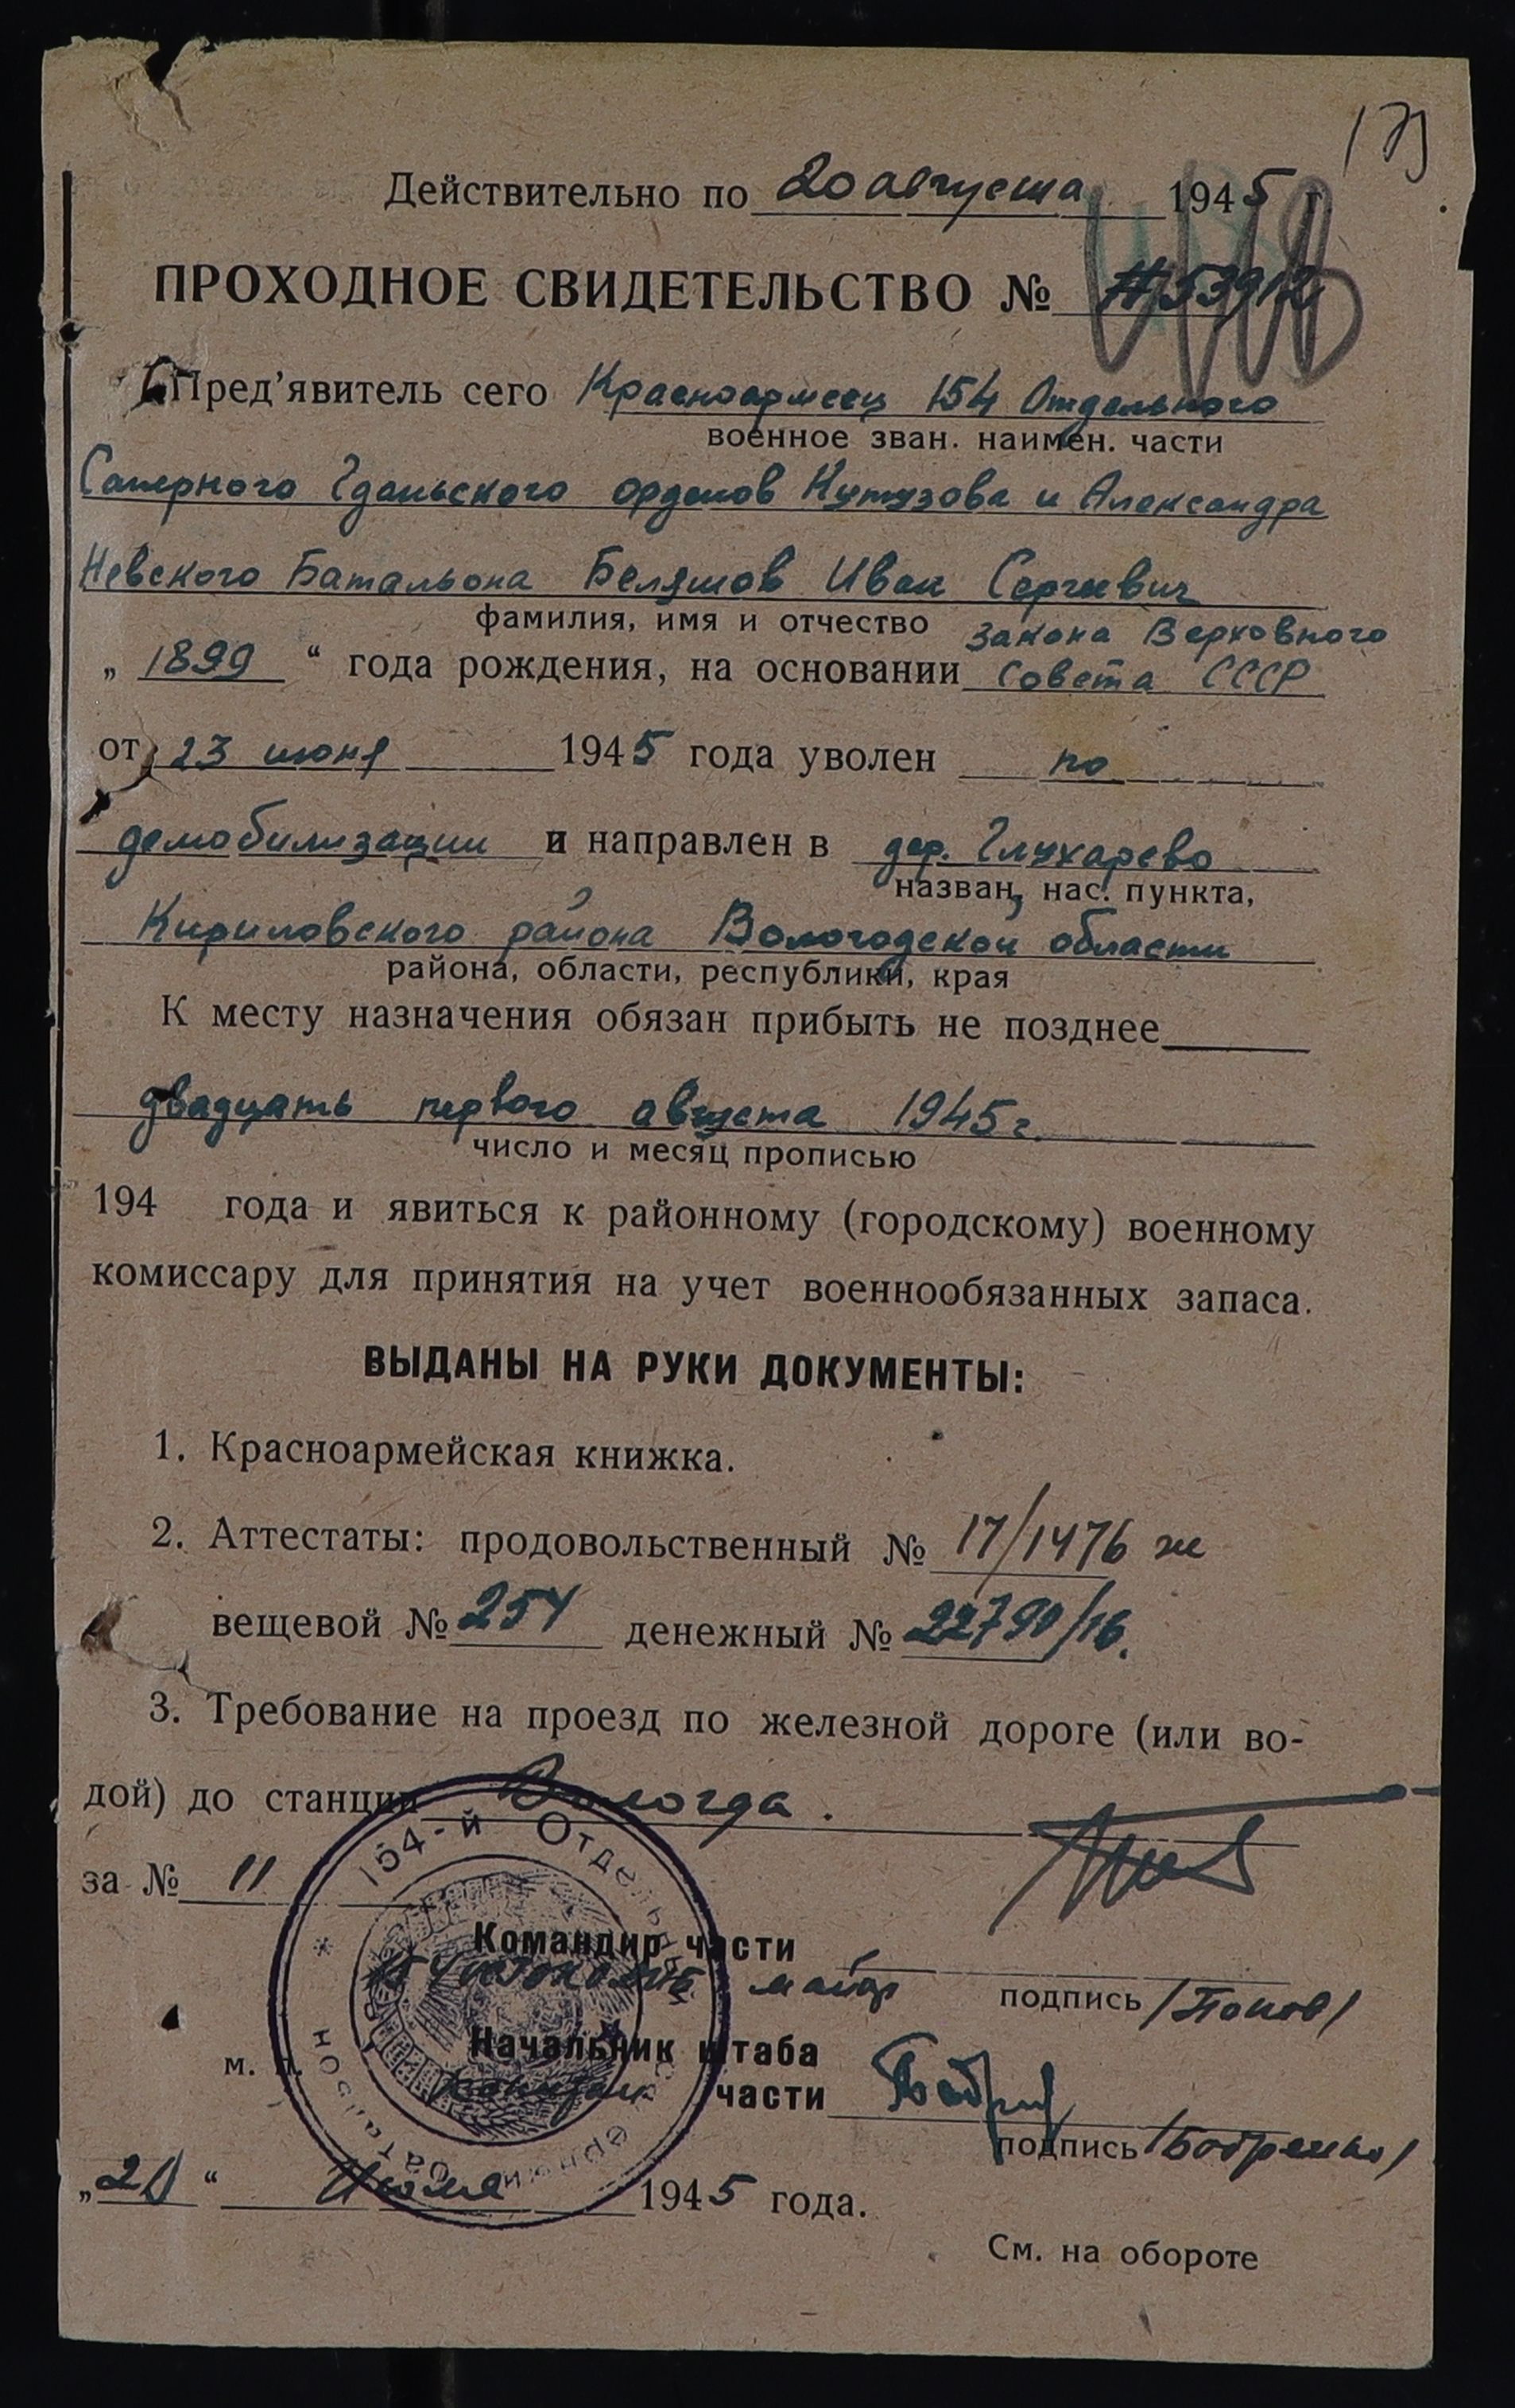 Действительно по 20 августа 1945 г
ПРОХОДНОЕ СВИДЕТЕЛЬСТВО №
Пред'явитель сего Красноармеец 154 Отдельного
военное зван. наимен. части
Саперного Гданьского орденов Кутузова и Александра
Невского Батальона Беляшов Иван Сергеевич
фамилия, имя и отчество
Закона Верховного
„ 1899 “ года рождения, на основании Совета СССР
от 23 июня 1945 года уволен по
демобилизации и направлен в дер. Глухарево
назван, нас. пункта,
Кириловского района Вологодской области
района, области, республики, края
К месту назначения обязан прибыть не позднее
двадцать первого августа 1945 г.
число и месяц прописью
194 года и явиться к районному (городскому) военному
комиссару для принятия на учет военнообязанных запаса.
ВЫДАНЫ НА РУКИ ДОКУМЕНТЫ:
1. Красноармейская книжка.
2. Аттестаты: продовольственный № 17/1476
вещевой № 254 денежный № 22790/16.
3. Требование на проезд по железной дороге (или во-
дой) до станции Вологда.
за № 11
154-й Отдельный
Командир части
майор подпись /Попов/
Начальник штаба
м. п. части
подпись
Июля 1945 года.
См. на обороте